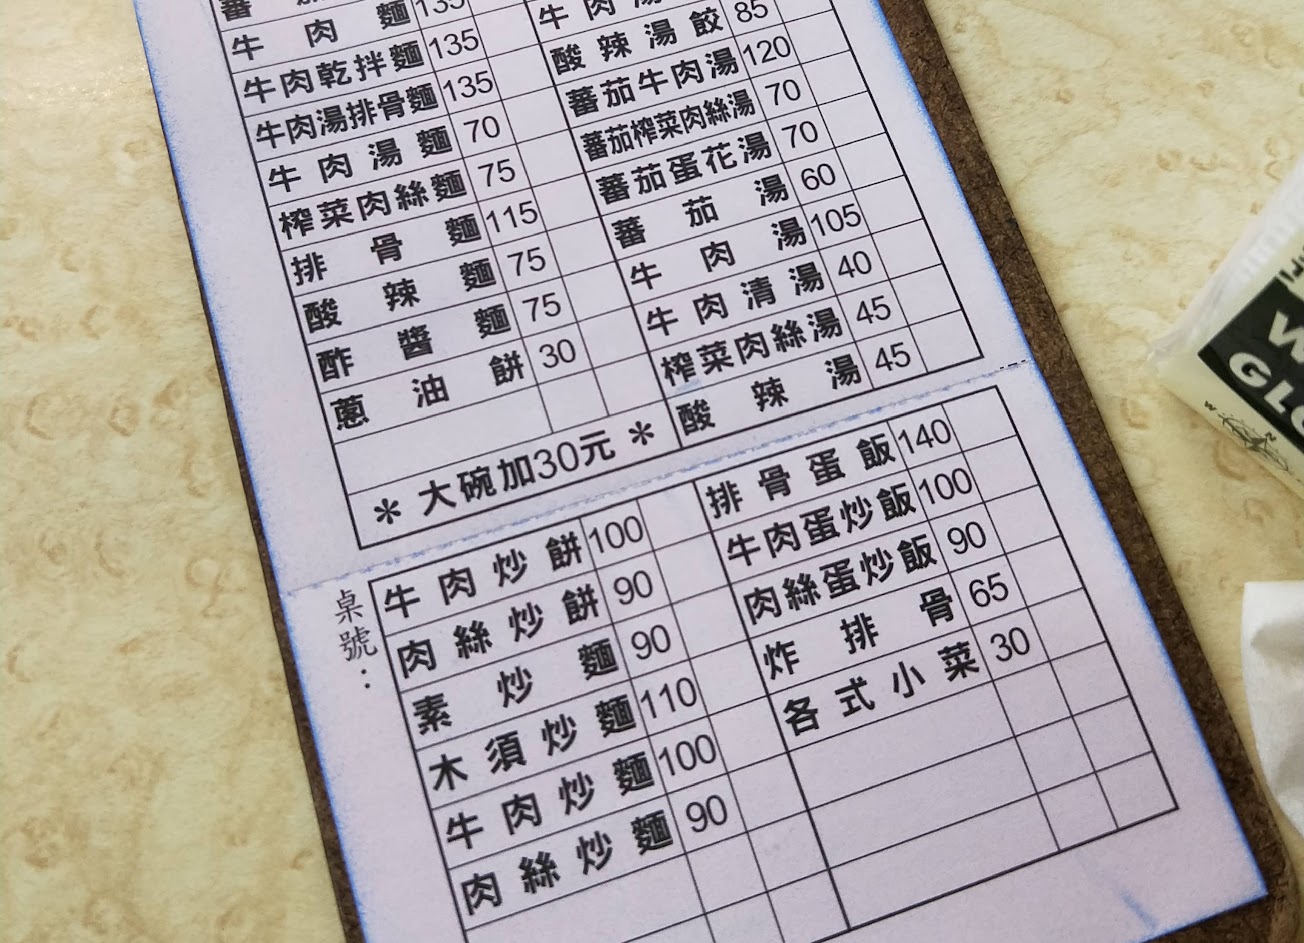 牛肉麵 135
牛肉乾拌麵 135
牛肉湯排骨麵 135
牛肉湯麵 70
榨菜肉絲麵 75
排骨麵 115
酸辣麵 75
酢醬麵 75
蔥油餅 30
＊大碗加30元＊
牛肉湯
酸辣湯餃 85
蕃茄牛肉湯 120
蕃茄榨菜肉絲湯 70
蕃茄蛋花湯 70
蕃茄湯 60
牛肉湯 105
牛肉清湯 40
榨菜肉絲湯 45
酸辣湯 45
桌號：
牛肉炒餅 100
肉絲炒餅 90
素炒麵 90
木須炒麵 110
牛肉炒麵 100
肉絲炒麵 90
排骨蛋飯 140
牛肉蛋炒飯 100
肉絲蛋炒飯 90
炸排骨 65
各式小菜 30